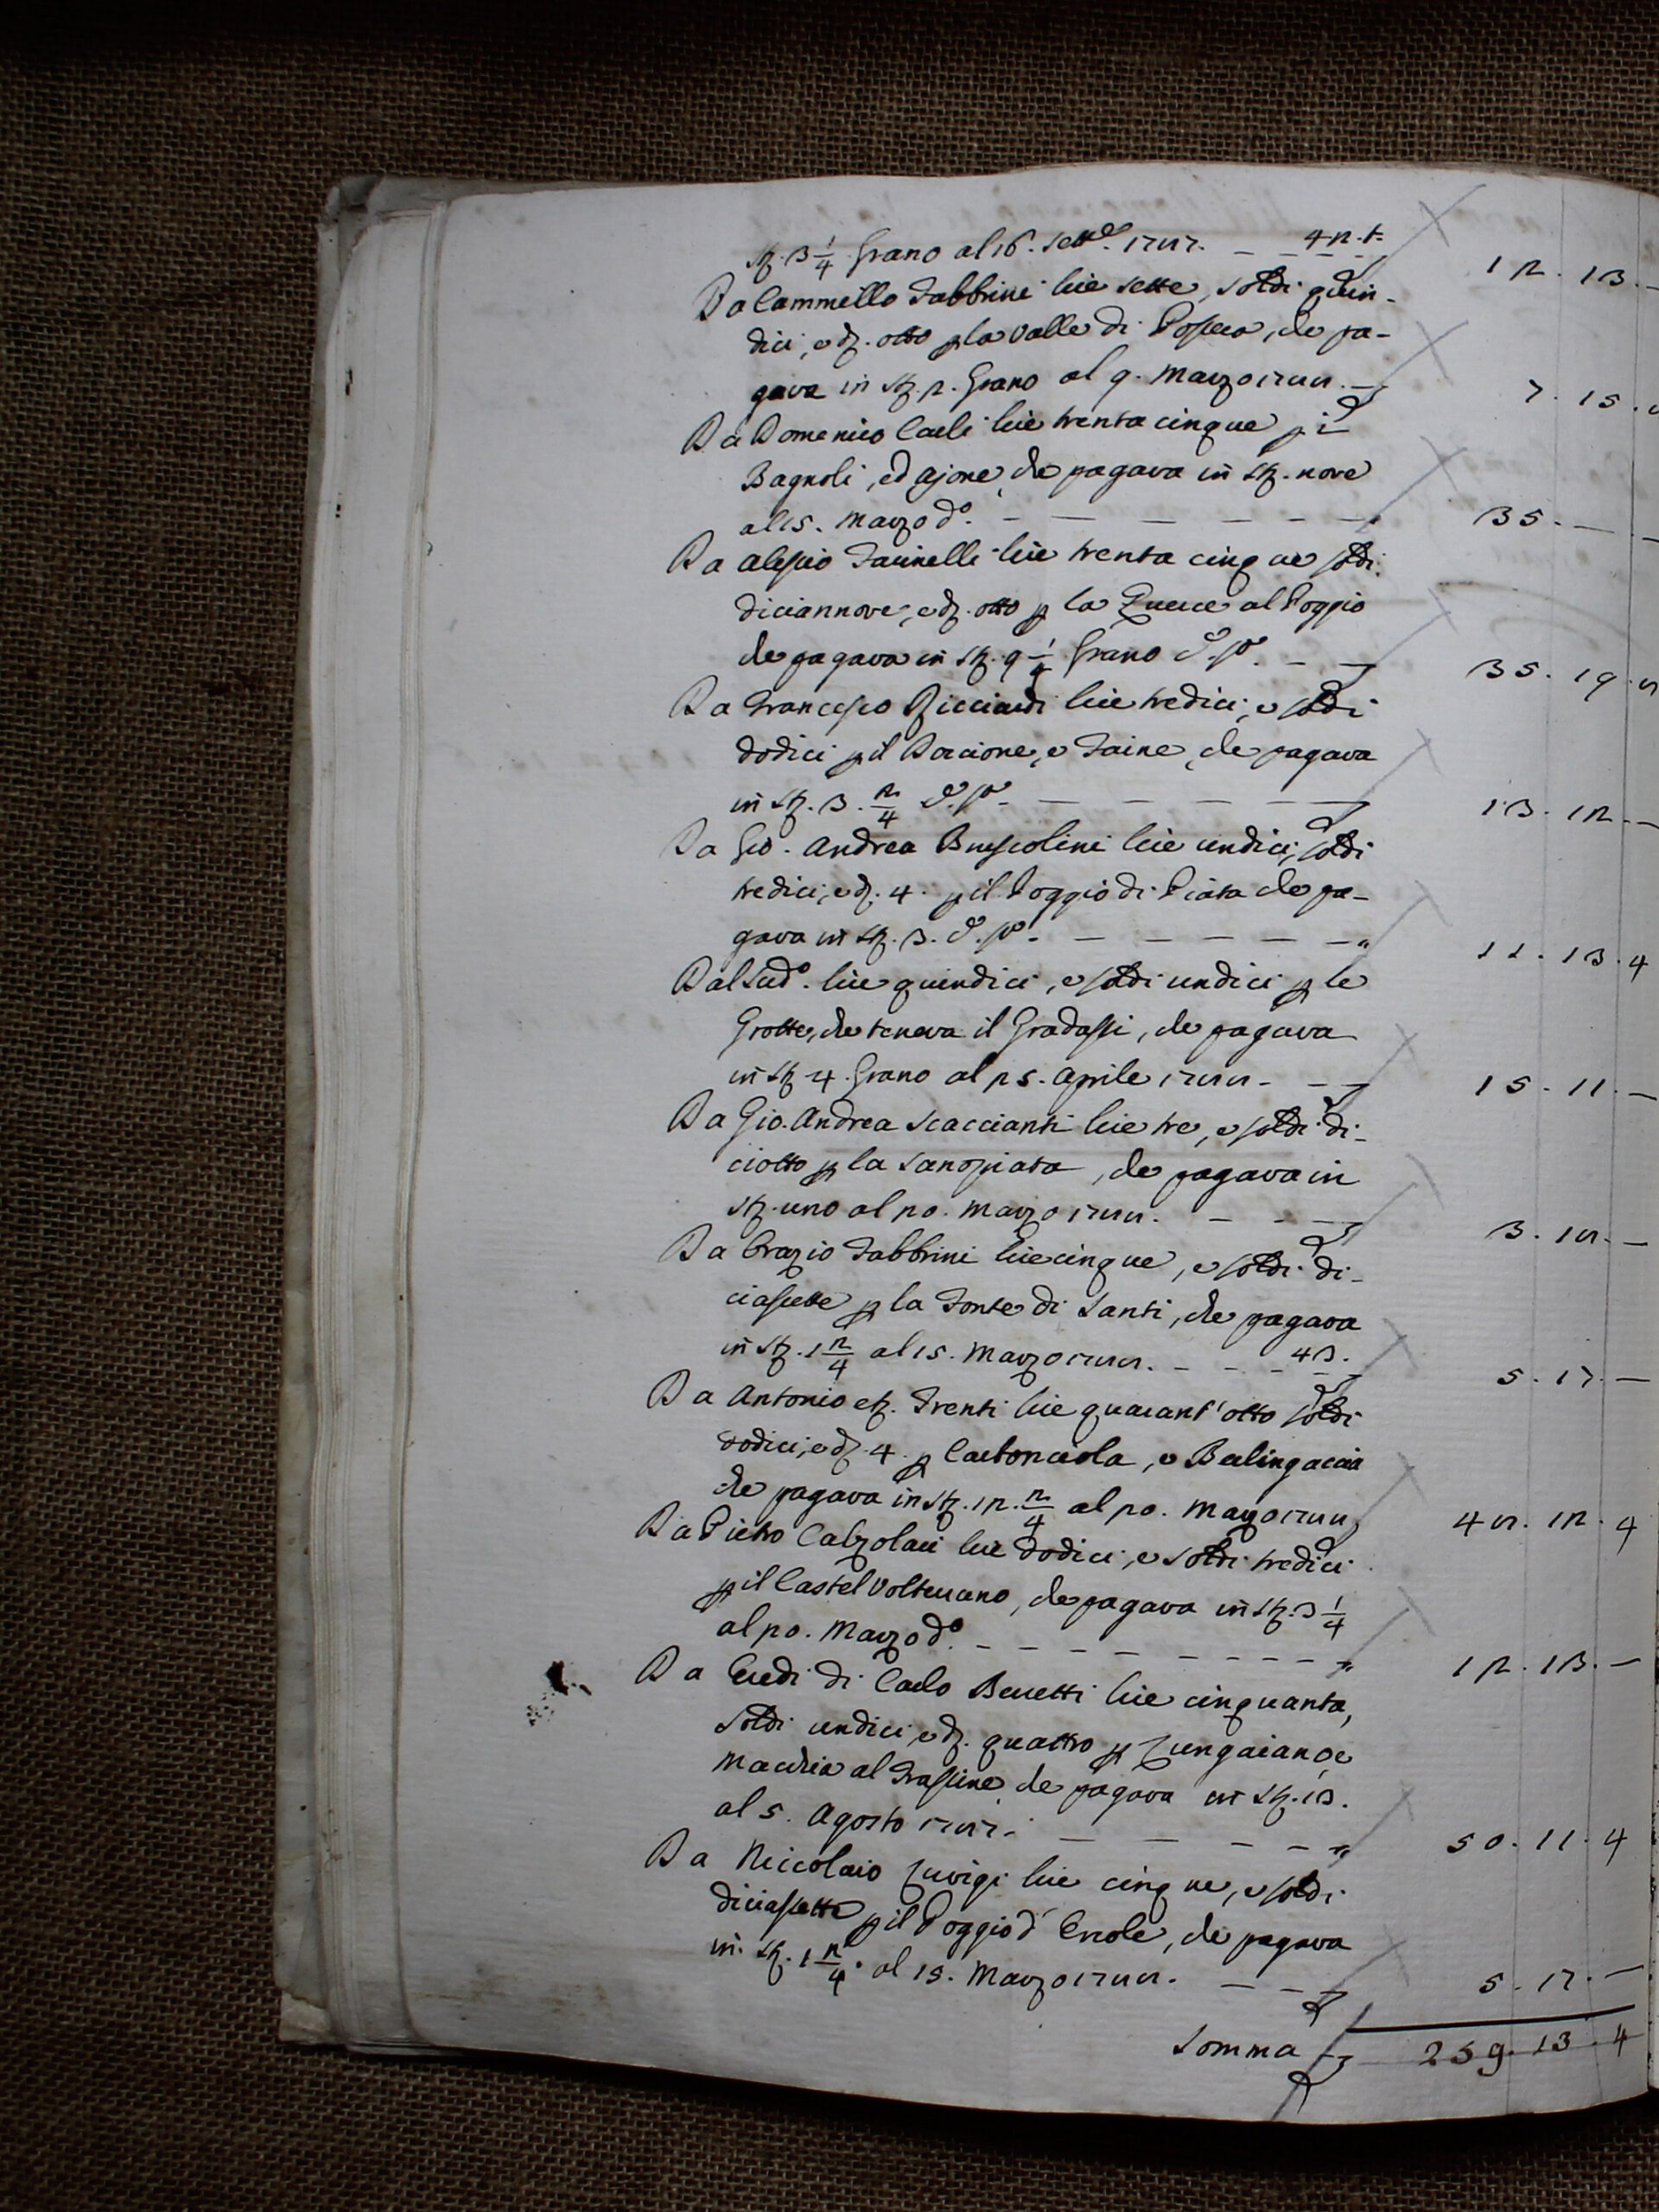 St. 3 1/4 Grano al 16. Sett.e 1787. — 42. t. 12. 13. —
Da Cammillo Fabbrini lire sette, soldi quin-
dici, e d. otto p la Valle di Poscia, che pa-
gava in St. 2. Grano al 9. Marzo 1788. — 7. 15. 8
Da Domenico Carli lire trenta cinque p i
Bagnoli, ed ajone, che pagava in St. nove
al 15. Marzo do. — 35. — —
Da Alessio Farinelli lire trenta cinque soldi
diciannove, e d. otto p la Querce al Poggio
che pagava in St. 9 1/4 Grano d. — 35. 19. 8
Da Francesco Ricciardi lire tredici, e soldi
dodici p il Doccione, e Faine, che pagava
in St. 3. 2/4 d. — 13. 12. —
Da Gio. Andrea Bruscolini lire undici, soldi
tredici, e d. 4. p il Poggio di Piata che pa-
gava in St. 3. d. — 11. 13. 4
Dal Sudo. lire quindici, e soldi undici p le
Grotte, che teneva il Gradassi, che pagava
in St. 4. Grano al 25. Aprile 1788. — 15. 11. —
Da Gio. Andrea Scaccianti lire tre, e soldi di-
ciotto p la , che pagava in
St. uno al 20. Marzo 1788. — 3. 18. —
Da Orazio Fabbrini lire cinque, e soldi di-
ciasette p la Fonte di Santi, che pagava
in St. 1 2/4 al 15. Marzo 1788. — 43. 5. 17. —
Da Antonio et. Trenti lire quarant'otto soldi
dodici, e d. 4. p Carbonciola, e Berlingaccia
che pagava in St. 12. 2/4 al 20. Marzo 1788 48. 12. 4
Da Pietro Calzolari lire dodici, e soldi tredici
p il Castel Volterrano, che pagava in St. 3 1/4
al 20. Marzo do. — 12. 13. —
Da Eredi di Carlo Benetti lire cinquanta,
soldi undici, e d. quattro p Lungaiano, e
Macchia al Frassine, che pagava in St. 13.
al 5. Agosto 1787. — 50. 11. 4
Da Niccolaio Luvigi lire cinque, e soldi
diciasette p il Poggio d'Ercole, che pagava
in St. 1 2/4. al 15. Marzo 1788. — 5. 17. —
Somma 259. 13. 4